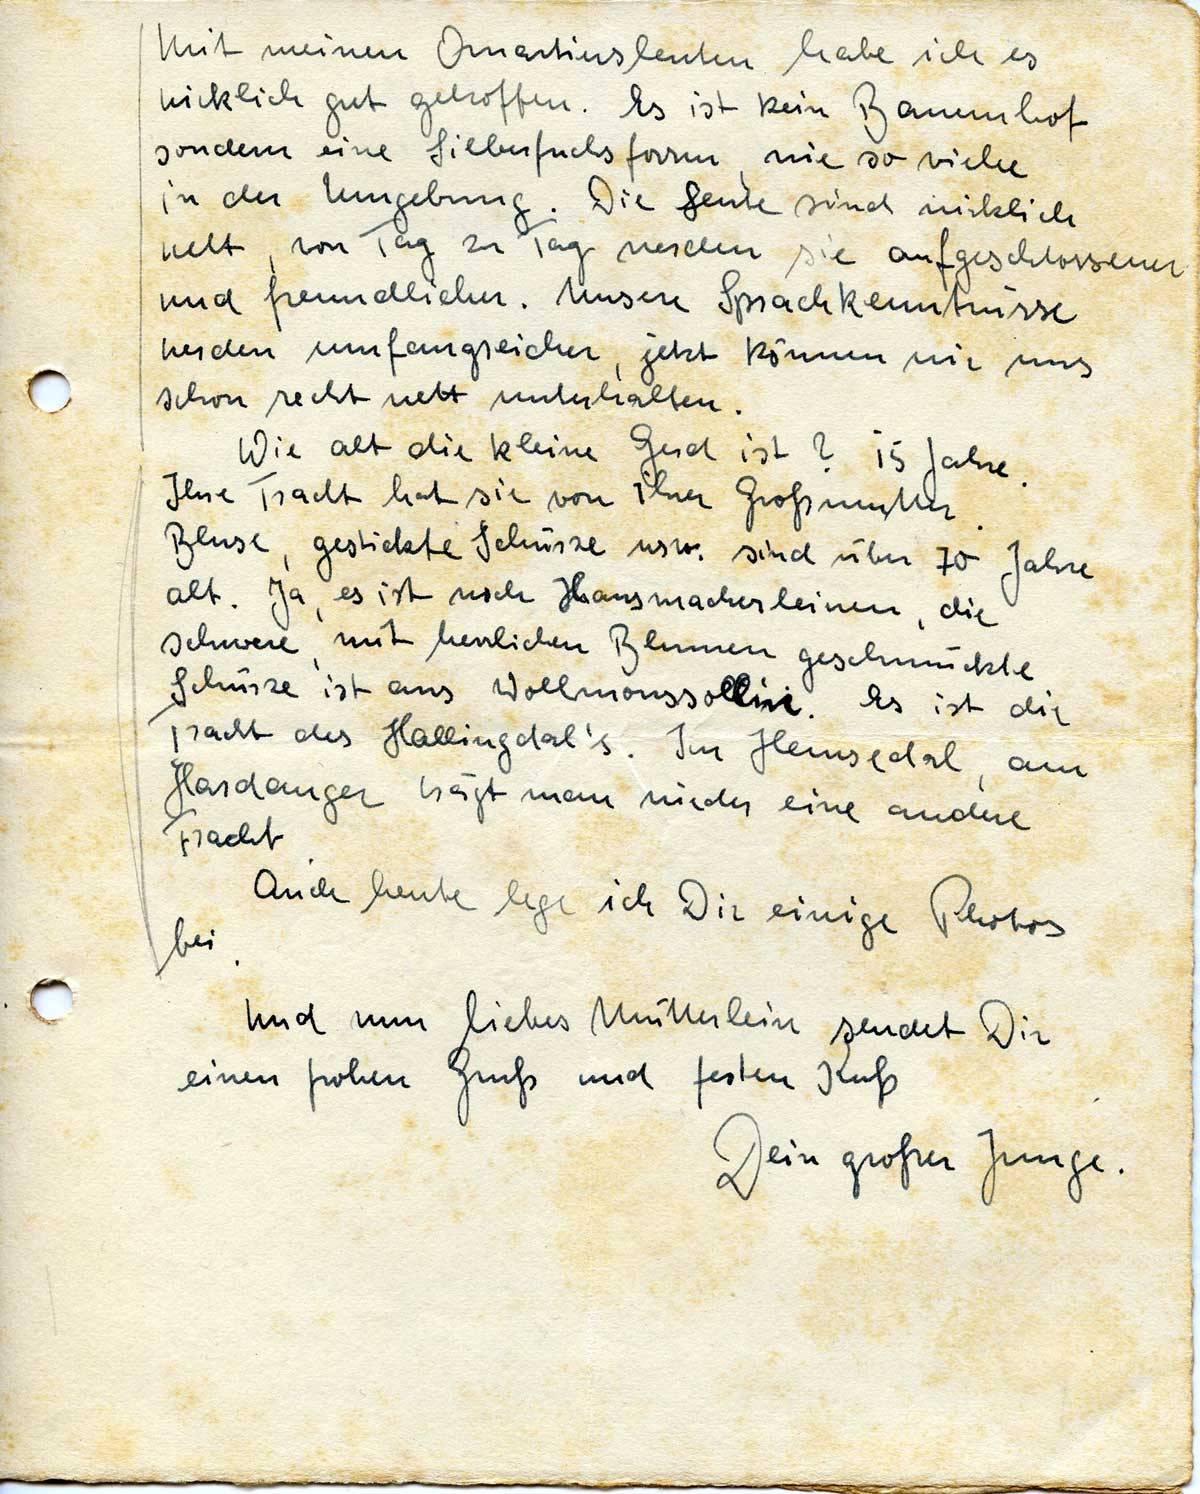 Mit meinen Quartiersleuten habe ich es
wirklich gut getroffen. Es ist kein Bauernhof
sondern eine Silberfuchsfarm, wie so viele
in der Umgebung. Die Leute sind wirklich
nett, von Tag zu Tag werden sie aufgeschlossener
und freundlicher. Unsere Sprachkenntnisse
werden umfangreicher, jetzt können wir uns
schon recht nett unterhalten.
Wie alt die kleine Gerd ist? 15 Jahre.
Ihre Tracht hat sie von Ihrer Großmutter.
Bluse, gestickte Schürze usw. sind über 70 Jahre
alt. Ja, es ist noch Hausmacherleinen, die
schwere, mit herrlichen Blumen geschmückte
Schürze ist aus Wollmoussollin. Es ist die
Tracht des Hallingdal's. Im Hemsedal, am
Hardanger trägt man wieder eine andere
Tracht
Auch heute lege ich Dir einige Photos
bei.
Und nun liebes Mütterlein sendet Dir
einen frohen Gruß und festen Kuß
Dein großer Junge.